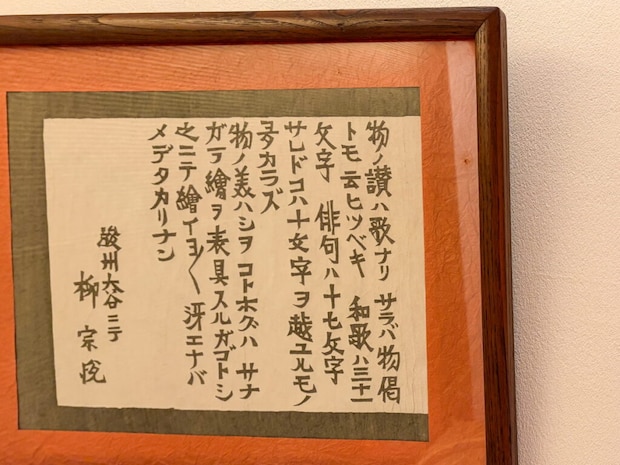 物ノ讃ハ歌ナリ サラバ物偈
トモ云ヒツベキ 和歌ハ三十一
文字 俳句ハ十七文字
サレドコハ十文字ヲ越ユルモノ
多カラズ
物ノ美ハシヲコトホグハ サナ
ガラ繪ヲ表具スルガゴトシ
之ニテ繪イヨ〳〵冴エナバ
メデタカリナン
駿州大谷ニテ
柳宗悦